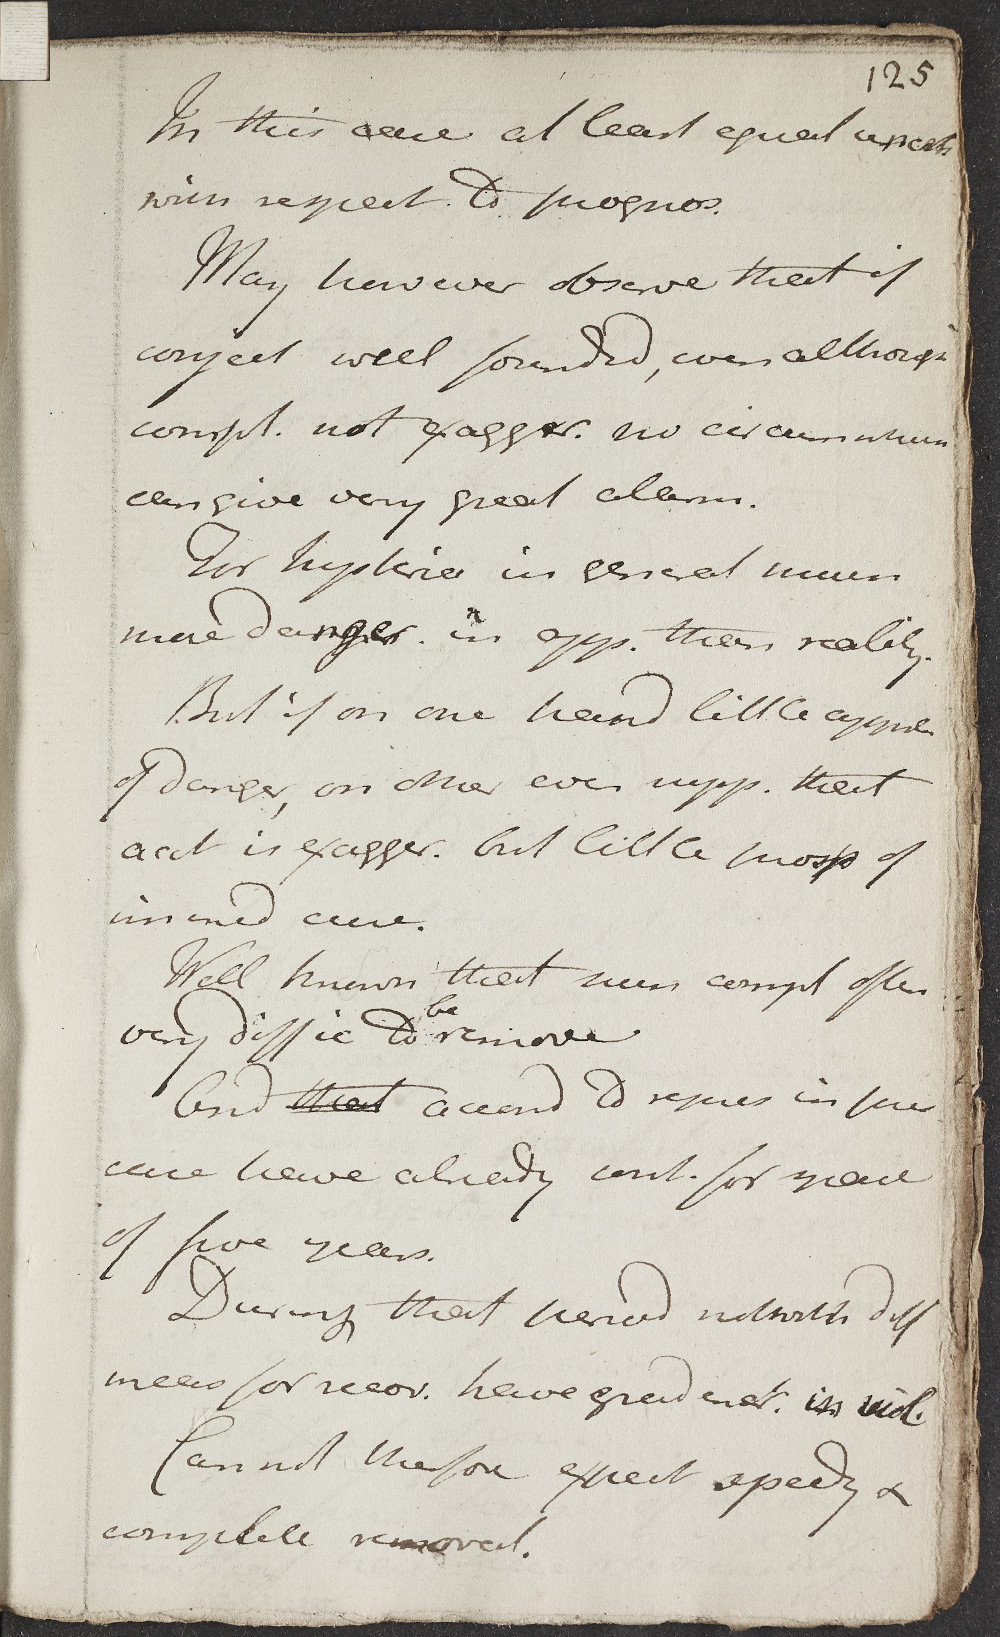 125
In this case at least equal uncert
with respect to prognos.
May however observe that if
conject well founded, even although
compl. not exagger. no circum when
can give very great alarm.
For hysteria in general much
more danger. in app. than reality.
But if on one hand little appreh
of danger, on other even supp. that
acct is exagger. but little prosp of
immed cure.
Well known that such compl often
very diffic to be remove
And that accord to repres in pres
case have already cont. for space
of five years.
During that period notwith diff
meas for recov. have grad encr. in viol.
Cannot therfore expect speedy &
complete removal.